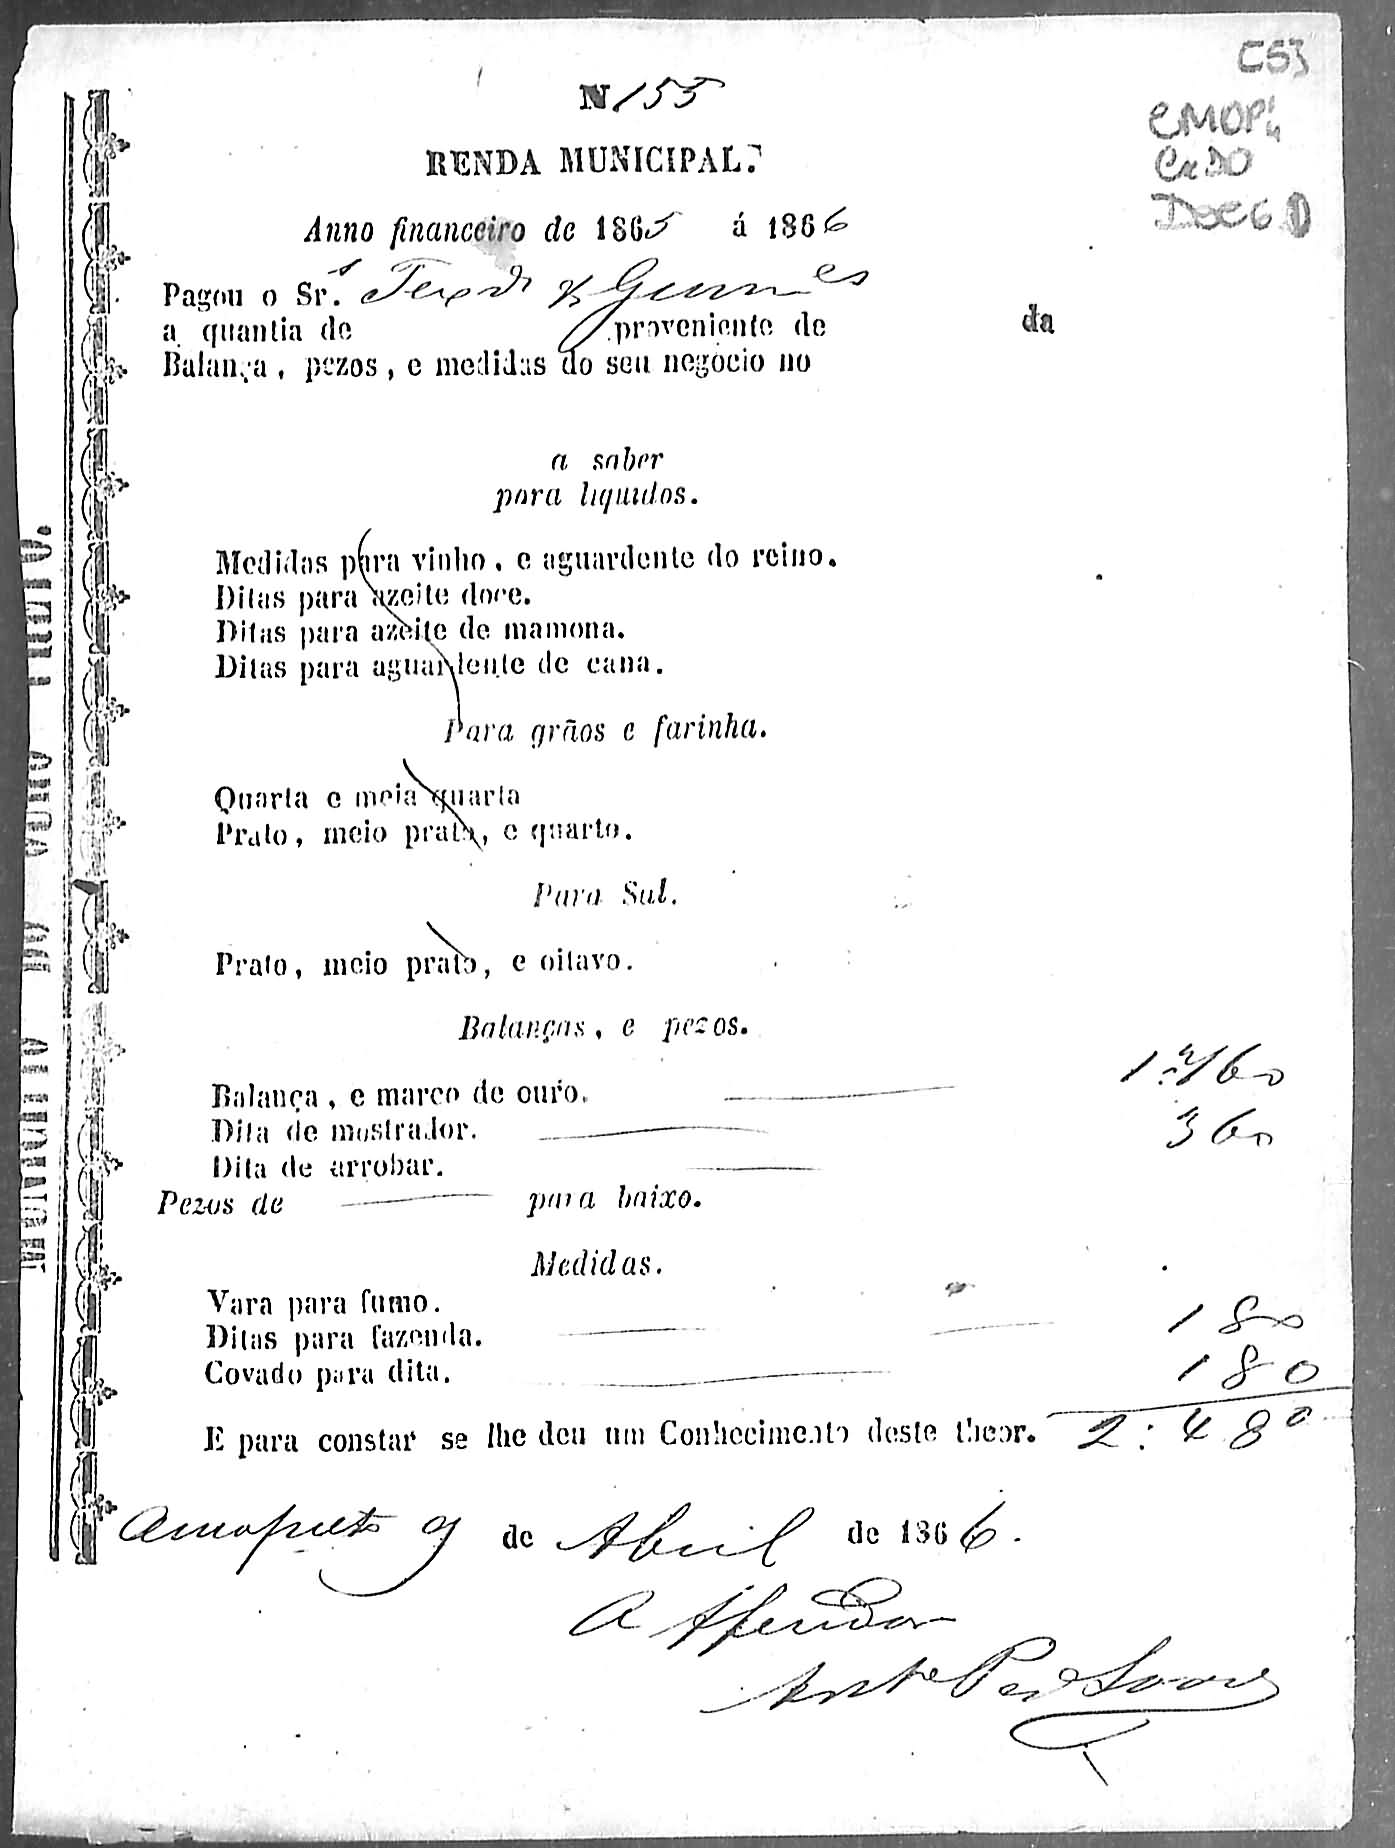 C53
CMOP
Cx DO
Doc 6
N 155
RENDA MUNICIPAL.
Anno financeiro de 1865 á 1866
Pagou o Sr.
a quantia de proveniente de da
Balança, pezos, e medidas do seu negocio no
a saber
para liquidos.
Medidas para vinho, e aguardente do reino.
Ditas para azeite doce.
Ditas para azeite de mamona.
Ditas para aguardente de cana.
Para grãos e farinha.
Quarta e meia quarta
Prato, meio prato, e quarto.
Para Sal.
Prato, meio prato, e oitavo.
Balanças, e pezos.
Balança, e marco de ouro. 1:760
Dita de mostrador. 360
Dita de arrobar.
Pezos de para baixo.
Medidas.
Vara para fumo.
Ditas para fazenda. 180
Covado para dita. 180
E para constar se lhe deu um Conhecimento deste theor. 2:480
Ouropreto 9 de Abril de 1866.
O Aferidor
Anto Per Soares